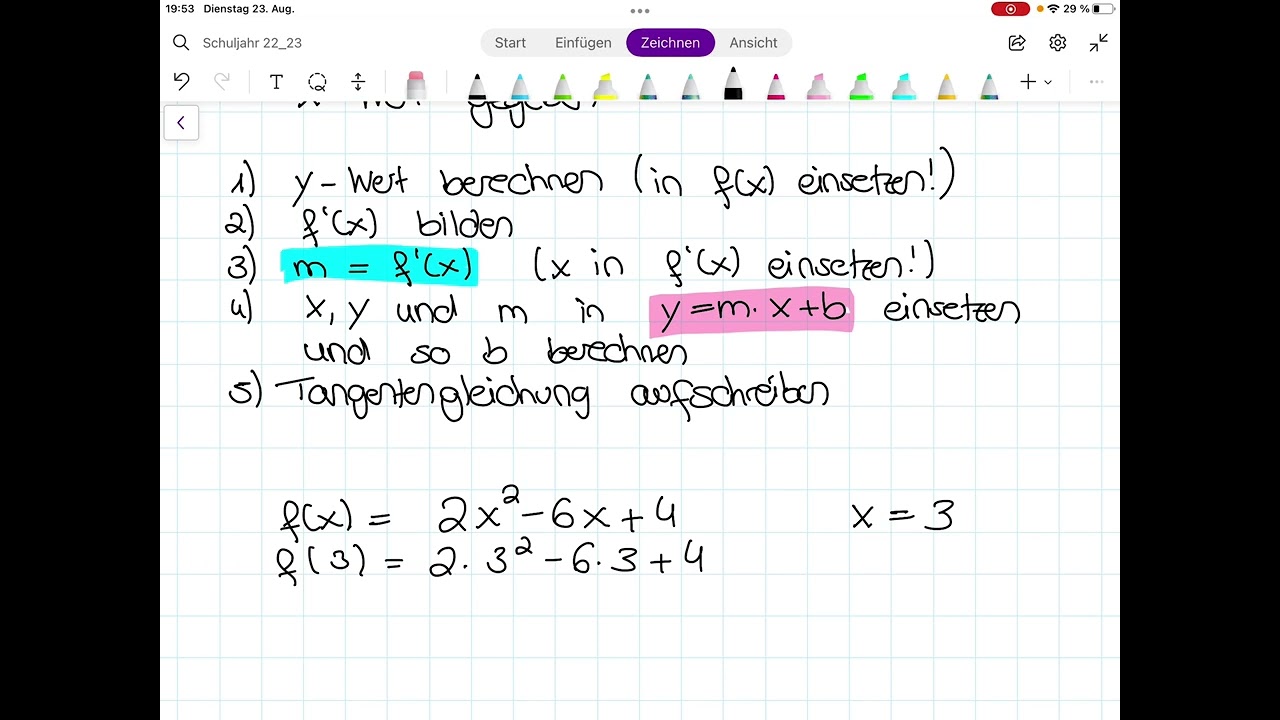 19:53 Dienstag 23. Aug. 29 %
Schuljahr 22_23 Start Einfügen Zeichnen Ansicht
T
1) y-Wert berechnen (in f(x) einsetzen!)
2) f'(x) bilden
3) m = f'(x) (x in f'(x) einsetzen!)
4) x, y und m in y=m·x+b einsetzen
und so b berechnen
5) Tangentengleichung aufschreiben
f(x) = 2x²-6x+4 x = 3
f(3) = 2·3²-6·3+4